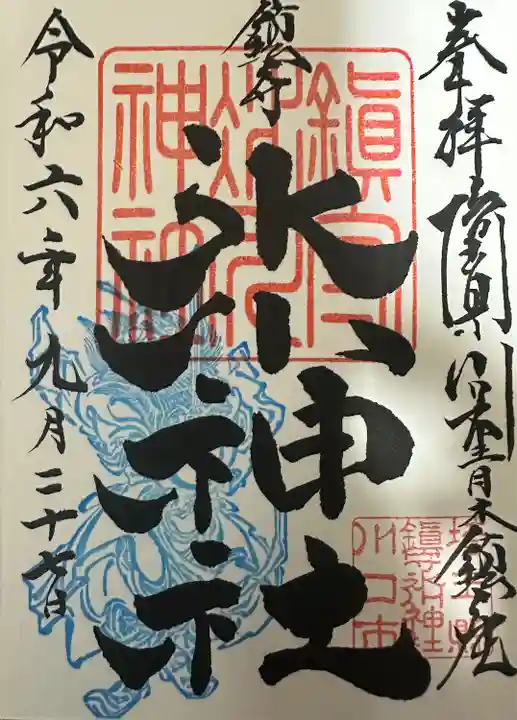 奉拝 埼玉県川口市青木鎮座
鎮守
氷川神社
令和六年九月二十七日
鎮守
氷川
神社
埼玉県
鎮守氷川神社
川口市